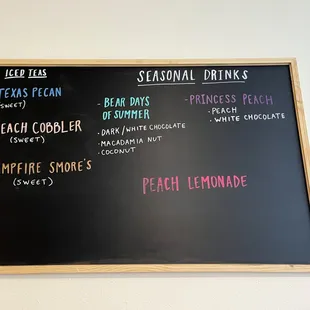 ICED TEAS
TEXAS PECAN
(SWEET)
PEACH COBBLER
(SWEET)
CAMPFIRE SMORE'S
(SWEET)
SEASONAL DRINKS
- BEAR DAYS
OF SUMMER
• DARK/WHITE CHOCOLATE
• MACADAMIA NUT
• COCONUT
- PRINCESS PEACH
• PEACH
• WHITE CHOCOLATE
PEACH LEMONADE